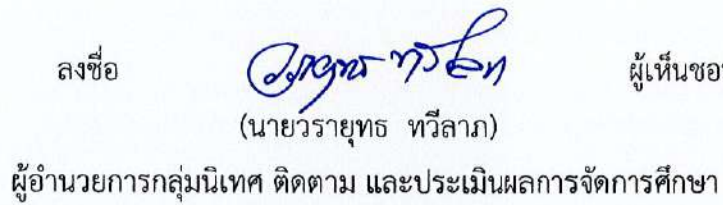 ลงชื่อ ผู้เห็นชอ
(นายวรายุทธ ทวีลาภ)
ผู้อำนวยการกลุ่มนิเทศ ติดตาม และประเมินผลการจัดการศึกษา